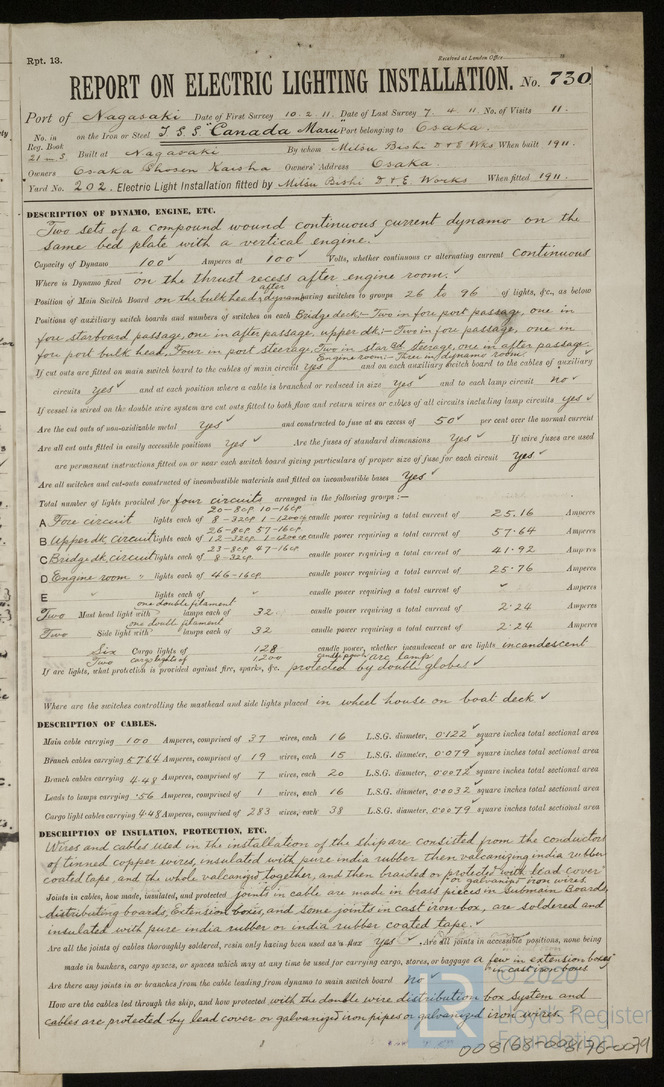 Rpt. 13.
Received at London Office
REPORT ON ELECTRIC LIGHTING INSTALLATION. No. 730
Port of Nagasaki Date of First Survey 10.2.11. Date of Last Survey 7.4.11. No. of Visits 11.
No. in Reg. Book 21 m S. on the Iron or Steel T.S.S "Canada Maru" Port belonging to Osaka.
Built at Nagasaki By whom Mitsu Bishi D & E Wks When built 1911.
Owners Osaka Shosen Kaisha Owners' Address Osaka.
Yard No. 202. Electric Light Installation fitted by Mitsu Bishi D & E. Works When fitted 1911.
DESCRIPTION OF DYNAMO, ENGINE, ETC.
Two sets of a compound wound continuous current dynamo on the
same bed plate with a vertical engine.
Capacity of Dynamo 100 Amperes at 100 Volts, whether continuous or alternating current continuous
Where is Dynamo fixed on the thrust recess after engine room.
Position of Main Switch Board on the bulkhead after dynamo having switches to groups 26 to 96 of lights, &c., as below
Positions of auxiliary switch boards and numbers of switches on each Bridge deck:- Two in fore port passage, one in
fore starboard passage, one in after passage. upper dk:- Two in fore passage, one in
fore port bulk head, Four in port steerage, Two in starbd steerage, one in after passage.
Engine room:- Three in dynamo room.
If cut outs are fitted on main switch board to the cables of main circuit yes and on each auxiliary switch board to the cables of auxiliary
circuits yes and at each position where a cable is branched or reduced in size yes and to each lamp circuit no
If vessel is wired on the double wire system are cut outs fitted to both flow and return wires or cables of all circuits including lamp circuits yes
Are the cut outs of non-oxidizable metal yes and constructed to fuse at an excess of 50 per cent over the normal current
Are all cut outs fitted in easily accessible positions yes Are the fuses of standard dimensions yes If wire fuses are used
are permanent instructions fitted on or near each switch board giving particulars of proper size of fuse for each circuit yes
Are all switches and cut-outs constructed of incombustible materials and fitted on incombustible bases yes
Total number of lights provided for four circuits arranged in the following groups:-
20-8cp 10-16cp
A Fore circuit lights each of 8-32cp 1-1200cp candle power requiring a total current of 25.16 Amperes
26-8cp 57-16cp
B Upper dk. circuit lights each of 12-32cp 1-1200cp candle power requiring a total current of 57.64 Amperes
23-8cp 47-16cp
C Bridge dk. circuit lights each of 8-32cp candle power requiring a total current of 41.92 Amperes
D Engine room " lights each of 46-16cp candle power requiring a total current of 25.76 Amperes
E " lights each of " candle power requiring a total current of Amperes
Two Mast head light with one double filament lamps each of 32 candle power requiring a total current of 2.24 Amperes
Two Side light with one double filament lamps each of 32 candle power requiring a total current of 2.24 Amperes
Six Cargo lights of 128 candle power, whether incandescent or arc lights incandescent
Two cargo lights of 1200 candle power arc lamp
If arc lights, what protection is provided against fire, sparks, &c. protected by double globes
Where are the switches controlling the masthead and side lights placed in wheel house on boat deck
DESCRIPTION OF CABLES.
Main cable carrying 100 Amperes, comprised of 37 wires, each 16 L.S.G. diameter, 0.122 square inches total sectional area
Branch cables carrying 57.64 Amperes, comprised of 19 wires, each 15 L.S.G. diameter, 0.079 square inches total sectional area
Branch cables carrying 4.48 Amperes, comprised of 7 wires, each 20 L.S.G. diameter, 0.0072 square inches total sectional area
Leads to lamps carrying .56 Amperes, comprised of 1 wires, each 16 L.S.G. diameter, 0.0032 square inches total sectional area
Cargo light cables carrying 4.48 Amperes, comprised of 283 wires, each 38 L.S.G. diameter, 0.0079 square inches total sectional area
DESCRIPTION OF INSULATION, PROTECTION, ETC.
Wires and cables used in the installation of the ship are consisted from the conductor
of tinned copper wires, insulated with pure india rubber then valcanizing india rubber
coated tape, and the whole valcanized together, and then braided or protected with lead cover
or galvanized iron wires.
Joints in cables, how made, insulated, and protected Joints in cable are made in brass pieces in Submain Boards,
distributing boards, Extension boxes, and some joints in cast iron box, are soldered and
insulated with pure india rubber or india rubber coated tape.
Are all the joints of cables thoroughly soldered, resin only having been used as a flux yes. Are all joints in accessible positions, none being
made in bunkers, cargo spaces, or spaces which may at any time be used for carrying cargo, stores, or baggage a few in extension boxes
in cast iron boxes
Are there any joints in or branches from the cable leading from dynamo to main switch board no
How are the cables led through the ship, and how protected with the double wire distribution box system and
cables are protected by lead cover or galvanized iron pipes or galvanized iron wires.
© 2020
LR
Lloyd's Register
Foundation
008168-008176-0079